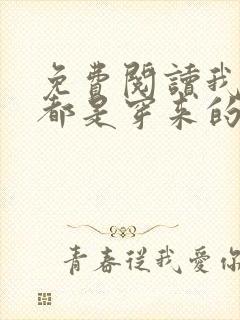 免費閱讀我
都是穿来的
青春從我愛你